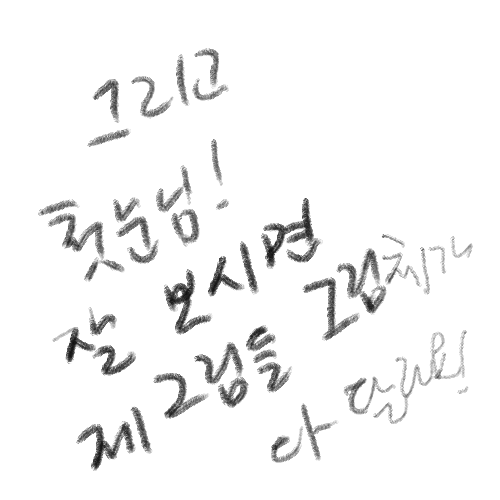 그리고
흣눈님!
잘 보시면
제 그림들 그림체가
다 달라요!